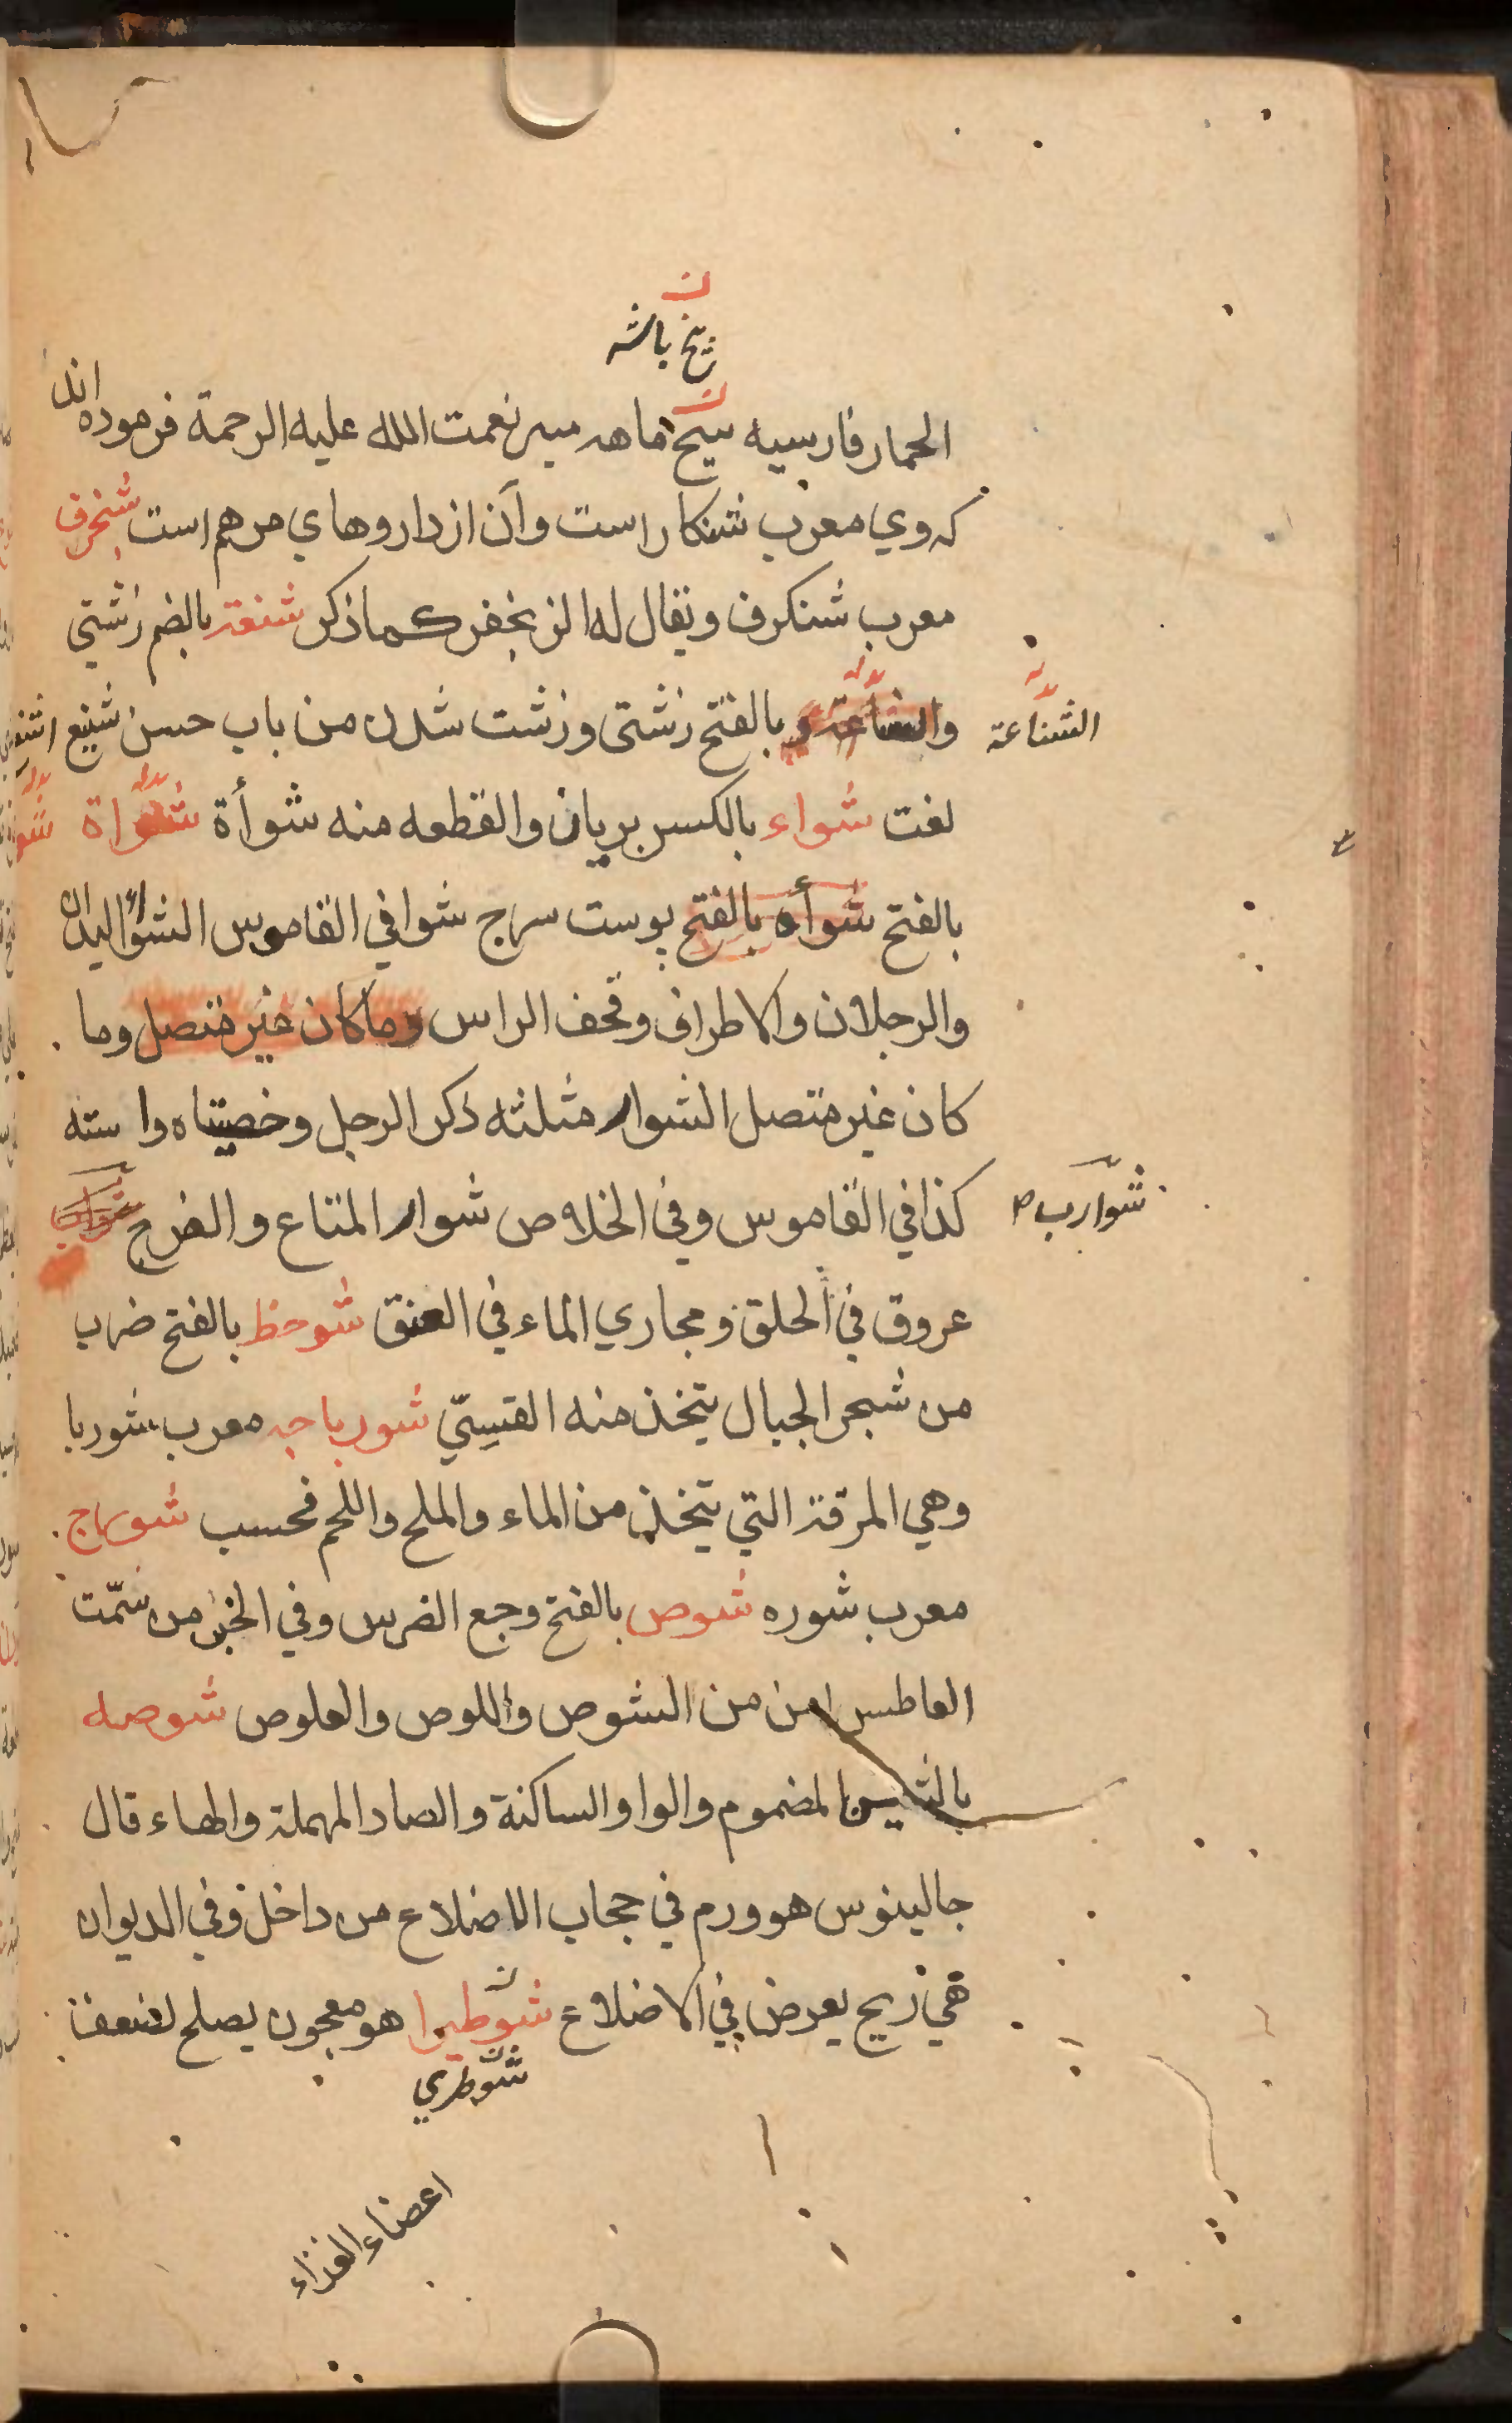 ن
زيخ باشه
الحمار فارسيه سيخ ماهه مير نعمت الله عليه الرحمة فرموده اند
كه وي معرب شنكار است وآن از داروهاي مرهم است شنجرف
معرب شنكرف ويقال له الزنجفر كما ذكر شنعة بالضم زشتي
الشناعة
والشناعة و بالفتح زشتى وزشت شدن من باب حسن شنيع
لغت شواء بالكسر بريان والقطعه منه شوأة شواة
بالفتح شوأه بالفتح پوست سر ج شوا في القاموس الشواء اليدان
والرجلان والاطراف وقحف الراس وما كان غير متصل وما
كان غير متصل الشوار مثلثه ذكر الرجل وخصيتاه واسته
شوارب
كذا في القاموس وفي الخلاص شوار المتاع والفرج شوارب
عروق في الحلق ومجاري الماء في العنق شوحظ بالفتح ضرب
من شجر الجبال يتخذ منه القسيّ شورباجه معرب شوربا
وهي المرقة التي يتخذ من الماء والملح واللحم فحسب شورج
معرب شوره شوص بالفتح وجع الضرس وفي الخبر من شمّت
العاطس امن من الشوص واللوص والعلوص شوصه
بالشين المضموم والواو الساكنة والصاد المهملة والهاء قال
جالينوس هو ورم في حجاب الاضلاع من داخل وفي الديوان
هي ريح يعرض في الاضلاع شوطيرا هو معجون يصلح لضعف
شوطري
اعضاء الغذاء